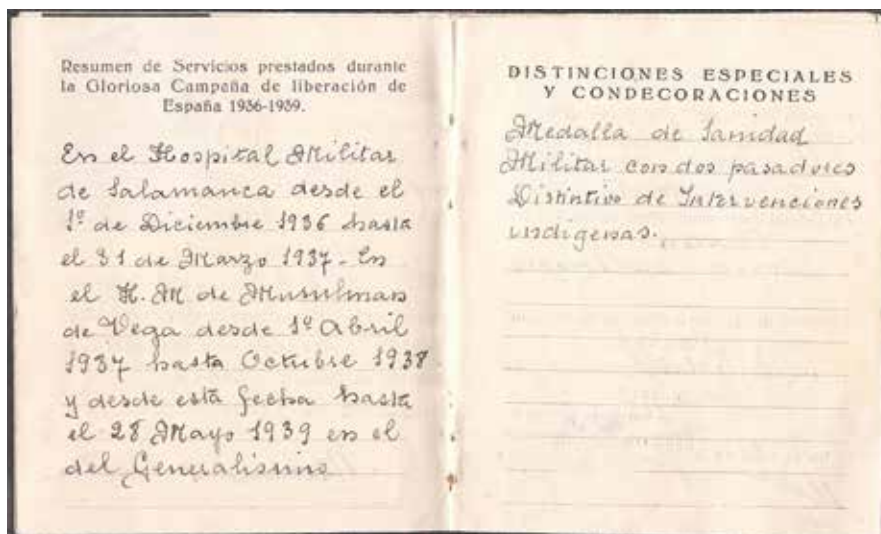 Resumen de Servicios prestados durante
la Gloriosa Campaña de liberación de
España 1936-1939.
En el Hospital Militar
de Salamanca desde el
1º de Diciembre 1936 hasta
el 31 de Marzo 1937 - En
el H. M de Musulman
de Vega desde 1º Abril
1937 hasta Octubre 1938
y desde está fecha hasta
el 28 Mayo 1939 en el
del Generalisimo
DISTINCIONES ESPECIALES
Y CONDECORACIONES
Medalla de Sanidad
Militar con dos pasadores
Distintivo de Intervenciones
indigenas.